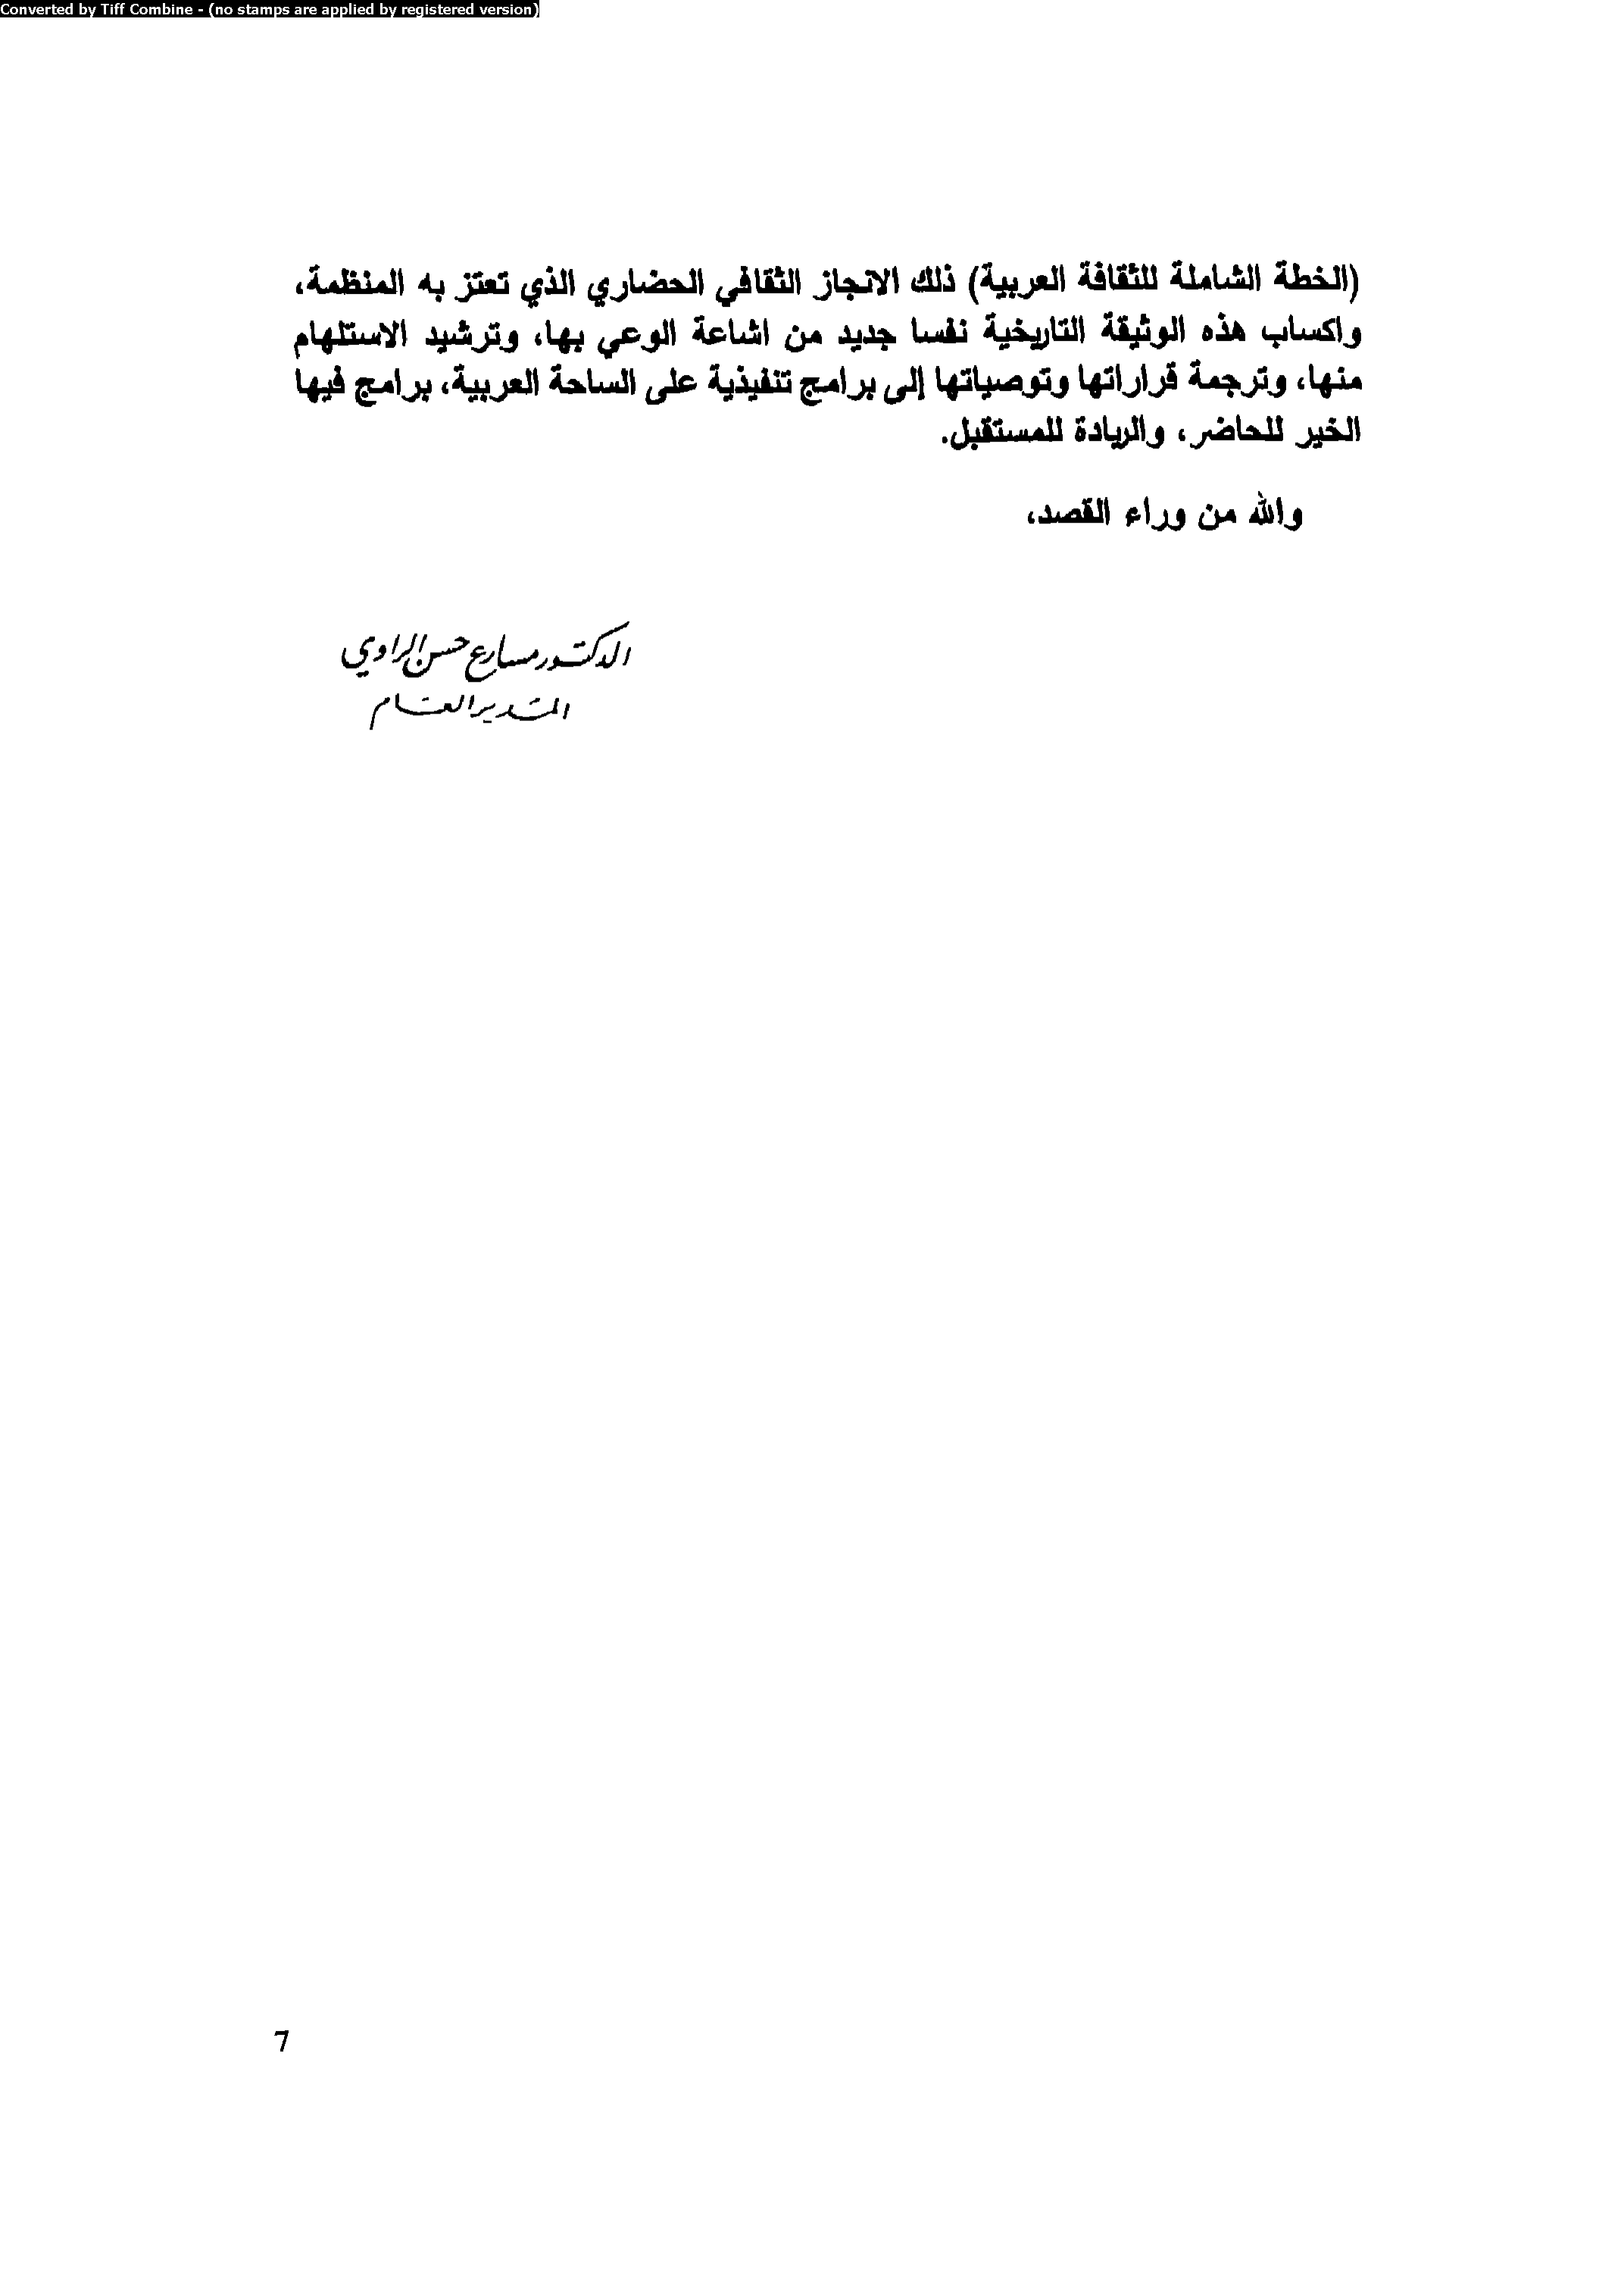 Converted by Tiff Combine - (no stamps are applied by registered version)
(الخطة الشاملة للثقافة العربية) ذلك الانجاز الثقافي الحضاري الذي تعتز به المنظمة،
واكساب هذه الوثيقة التاريخية نفسا جديد من اشاعة الوعي بها، وترشيد الاستلهام
منها، وترجمة قراراتها وتوصياتها إلى برامج تنفيذية على الساحة العربية، برامج فيها
الخير للحاضر، والريادة للمستقبل.
والله من وراء القصد،
الدكتور مسارع حسن الراوي
المدير العام
7